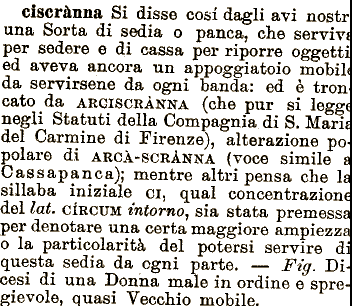 ciscrànna Si disse cosí dagli avi nostr
una Sorta di sedia o panca, che serviva
per sedere e di cassa per riporre oggetti
ed aveva ancora un appoggiatoio mobile
da servirsene da ogni banda: ed è tron-
cato da ARCISCRÀNNA (che pur si legge
negli Statuti della Compagnia di S. Maria
del Carmine di Firenze), alterazione po-
polare di ARCÀ-SCRÀNNA (voce simile a
Cassapanca); mentre altri pensa che la
sillaba iniziale CI, qual concentrazione
del lat. CÍRCUM intorno, sia stata premessa
per denotare una certa maggiore ampiezza
o la particolarità del potersi servire di
questa sedia da ogni parte. — Fig. Di-
cesi di una Donna male in ordine e spre-
gievole, quasi Vecchio mobile.